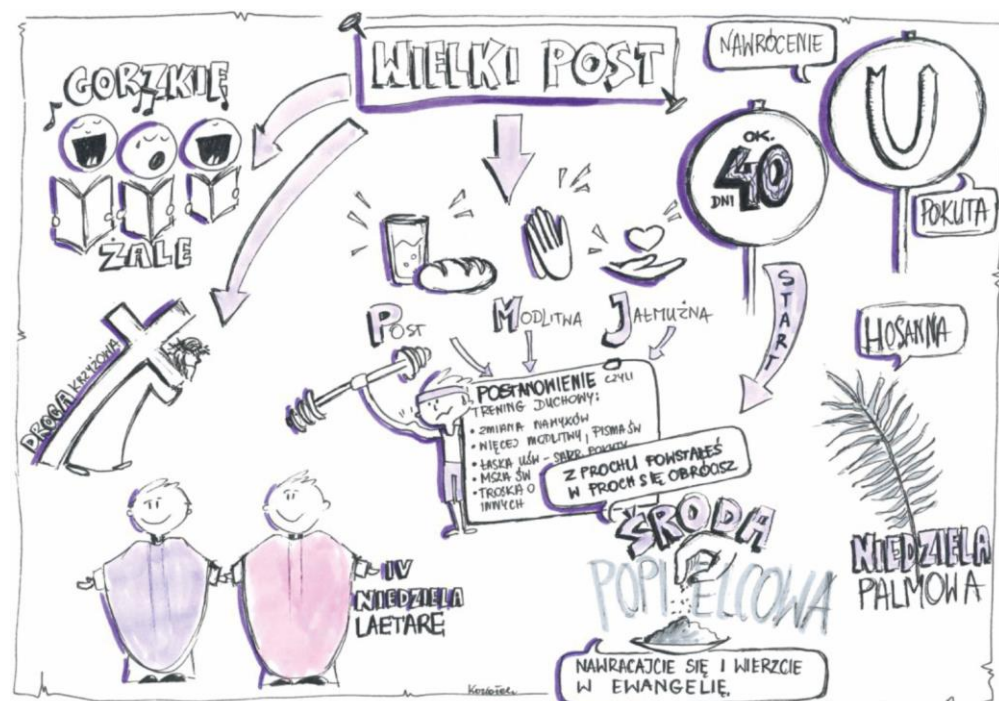 WIELKI POST
GORZKIE
ŻALE
NAWRÓCENIE
U
POKUTA
OK.
40
DNI
START
POST
MODLITWA
JAŁMUŻNA
DROGA KRZYŻOWA
POSTANOWIENIE CZYLI
TRENING DUCHOWY:
• ZMIANA NAWYKÓW
• WIĘCEJ MODLITWY, PISMA ŚW
• ŁASKA UŚW - SAKR. POKUTY
• MSZA ŚW
• TROSKA O
INNYCH
Z PROCHU POWSTAŁEŚ
W PROCH SIĘ OBRÓCISZ
HOSANNA
ŚRODA
POPIELCOWA
NIEDZIELA
PALMOWA
IV
NIEDZIELA
LAETARE
NAWRACAJCIE SIĘ I WIERZCIE
W EWANGELIĘ